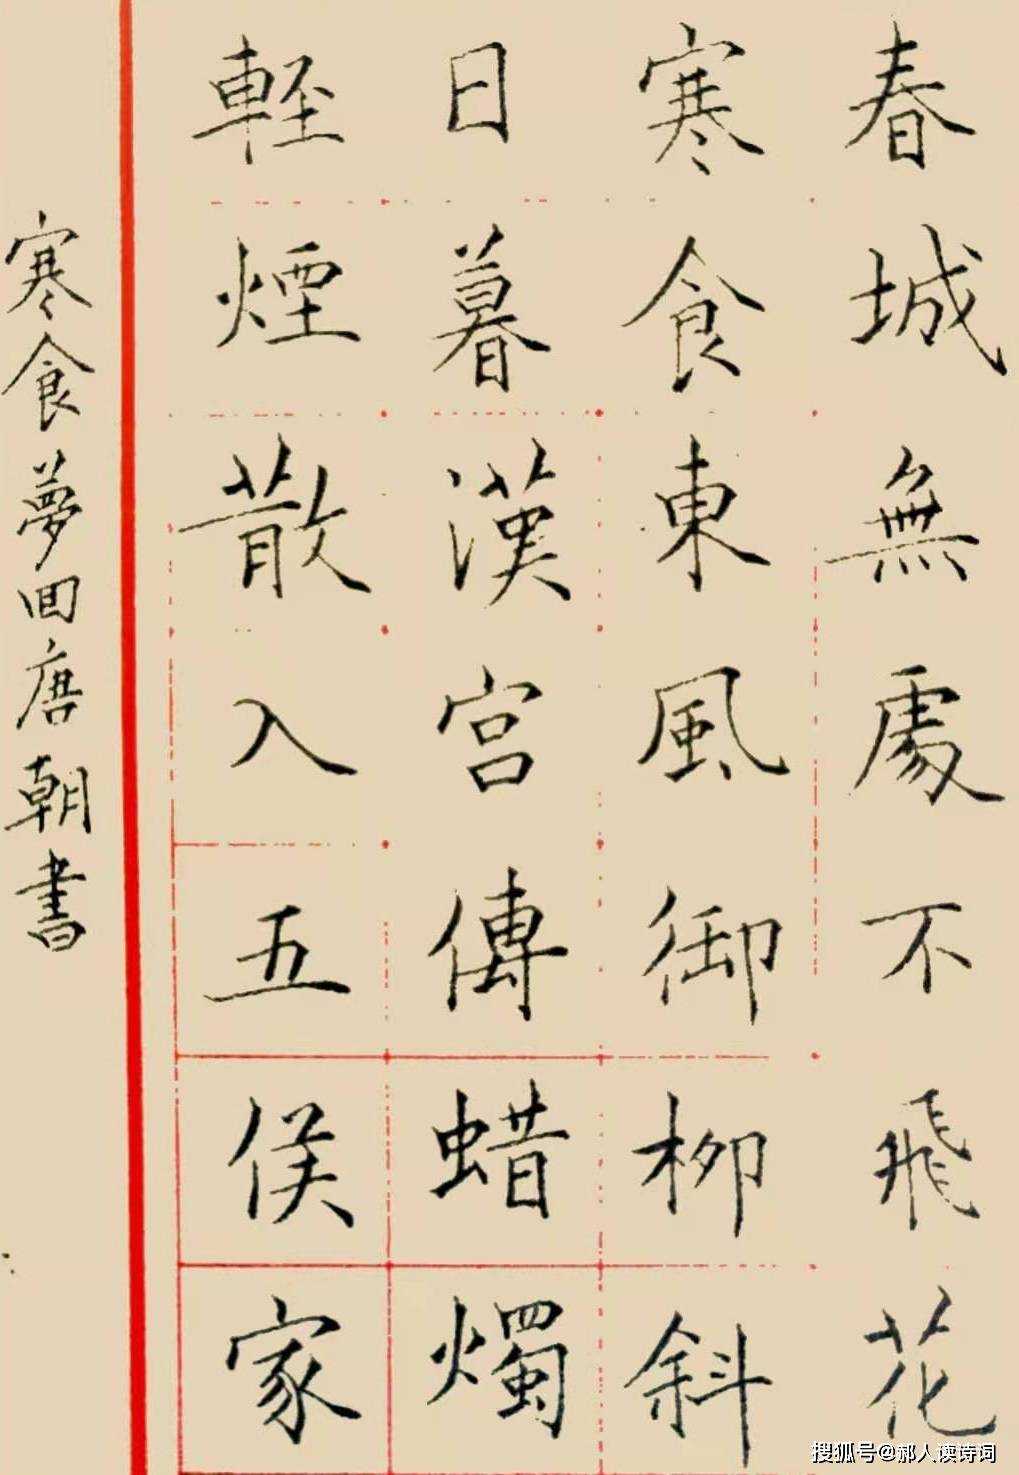 春城無處不飛花
寒食東風御柳斜
日暮漢宮傳蜡燭
輕煙散入五侯家
寒食夢回唐朝書
搜狐号@郝人读诗词